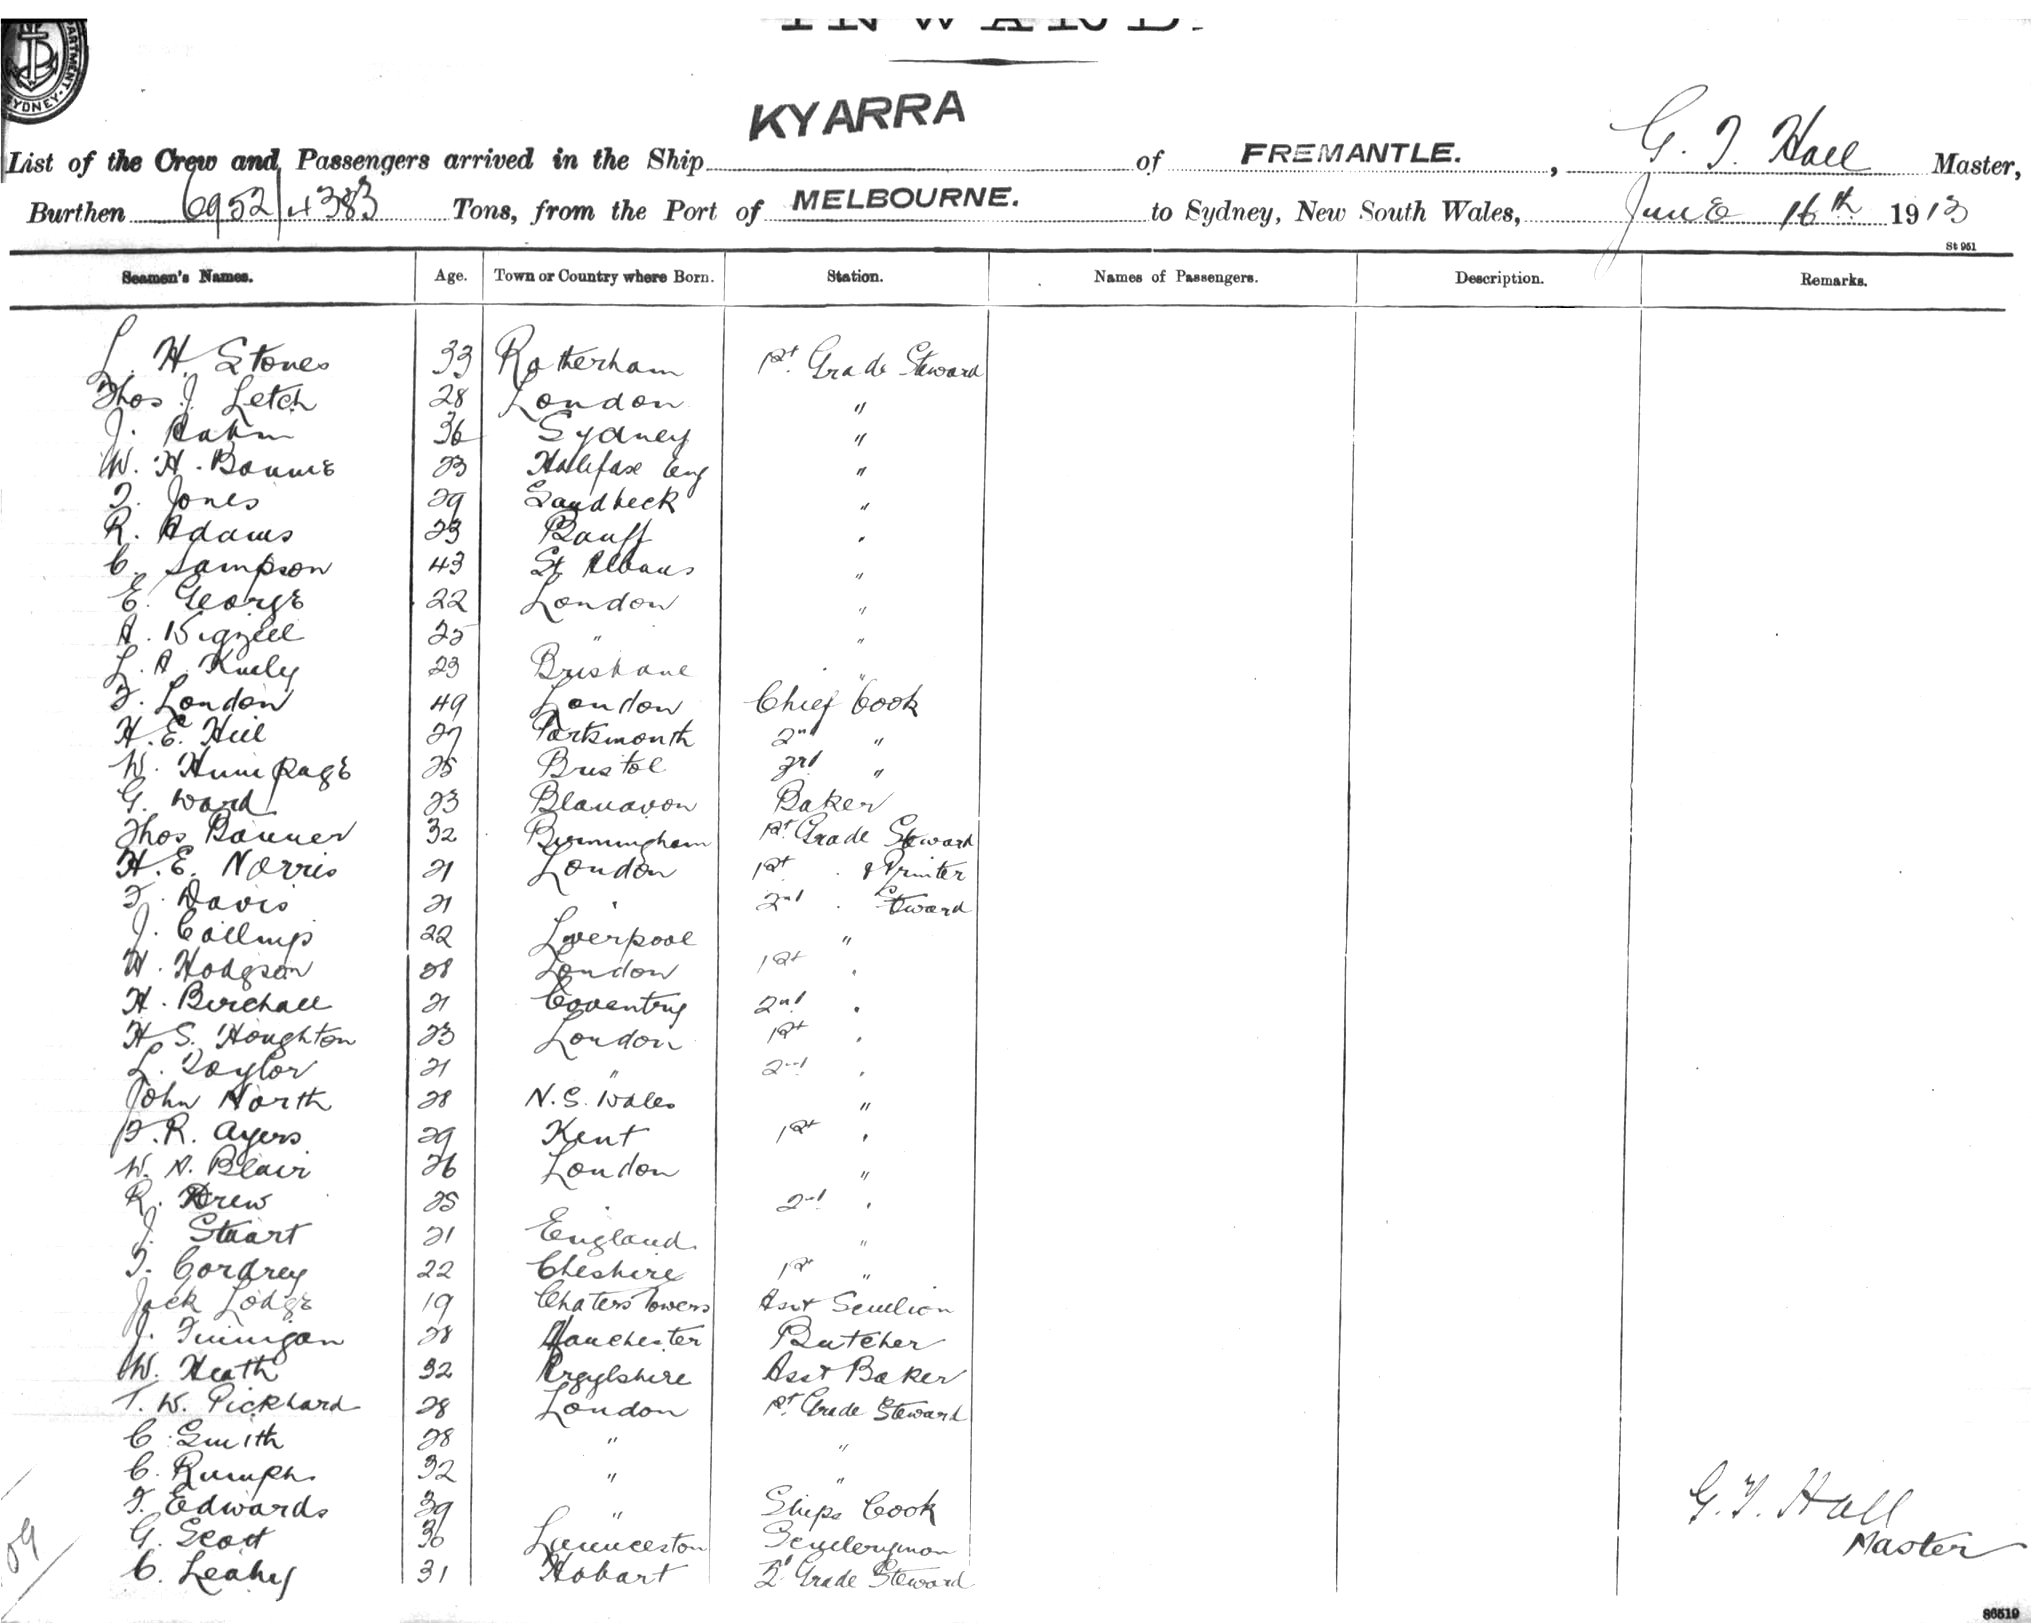 INWARD.
ARTMENT. SYDNEY
KYARRA
List of the Crew and Passengers arrived in the Ship KYARRA of FREMANTLE. , G. T. Hall Master,
Burthen 6952/4383 Tons, from the Port of MELBOURNE. to Sydney, New South Wales, June 16th 1913
St 961
Seamen's Names. Age. Town or Country where Born. Station. Names of Passengers. Description. Remarks.
L. H. Stones 33 Rotherham 1st Grade Steward
Thos J. Letch 28 London "
J. 36 Sydney "
W. H. 23 Halifax Eng "
T. Jones 29 Sandbeck "
R. Adams 23 Banff "
C. Sampson 43 St Albans "
E. George 22 London "
A. 25 " "
L. A. 23 Brisbane "
T. London 49 London Chief Cook
H. E. Hill 27 Portsmouth 2nd "
W. Humpage 25 Bristol 3rd "
G. Ward 23 Blanavon Baker
Thos Banner 32 Birmingham 1st Grade Steward
H. E. Norris 21 London 1st " & Printer
T. Davis 21 " 2nd " Steward
J. Collings 22 Liverpool "
W. Hodgson 28 London 1st "
H. Birchall 21 Coventry 2nd "
H. S. Houghton 23 London 1st "
L. Taylor 21 " 2nd "
John North 28 N. S. Wales "
F. R. Ayers 29 Kent 1st "
W. A. Blair 26 London "
R. Drew 25 " 2nd "
J. Stuart 21 England "
T. Cordrey 22 Cheshire 1st "
Jack Lodge 19 Chaters Towers Asst Scullion
J. Finnigan 28 Manchester Butcher
W. Heath 32 Argylshire Asst Baker
T. W. Pickhard 28 London 1st Grade Steward
C. Smith 28 " "
C. Rumph 32 " "
T. Edwards 39 " Ships Cook
G. Scott 30 Launceston
C. Leahy 31 Hobart 2d Grade Steward
G. T. Hall
Master
09
86519